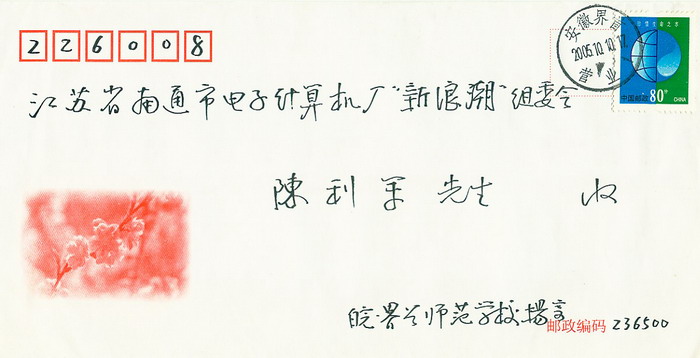 226008
安徽界首
2005.10.10.17
中国邮政 80分 CHINA
江苏省南通市电子计算机厂"新浪潮"组委会
陳利军 先生 收
皖界首师范学校楊
邮政编码 236500